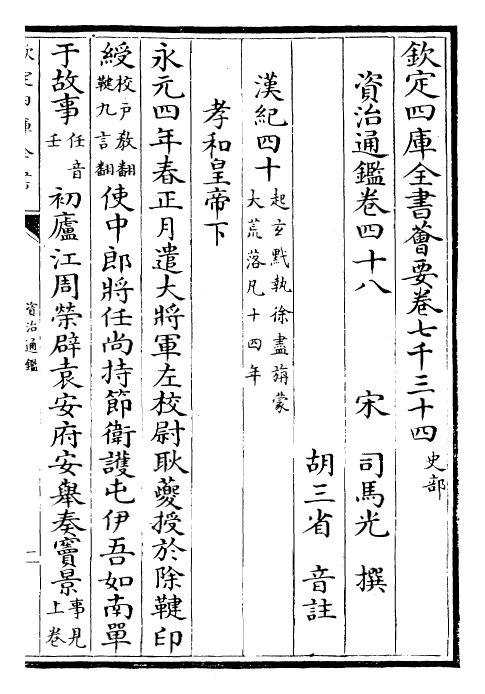 欽定四庫全書薈要卷七千三十四 史部
資治通鑑卷四十八
宋 司馬光 撰
胡三省 音註
漢紀四十 起玄黓執徐盡旃蒙大荒落凡十四年
孝和皇帝下
永元四年春正月遣大將軍左校尉耿夔授於除鞬印
綬校戶教翻鞬九言翻使中郎將任尚持節衛護屯伊吾如南單
于故事任音壬初廬江周榮辟袁安府安舉奏竇景事見上卷
欽定四庫全書
資治通鑑
一